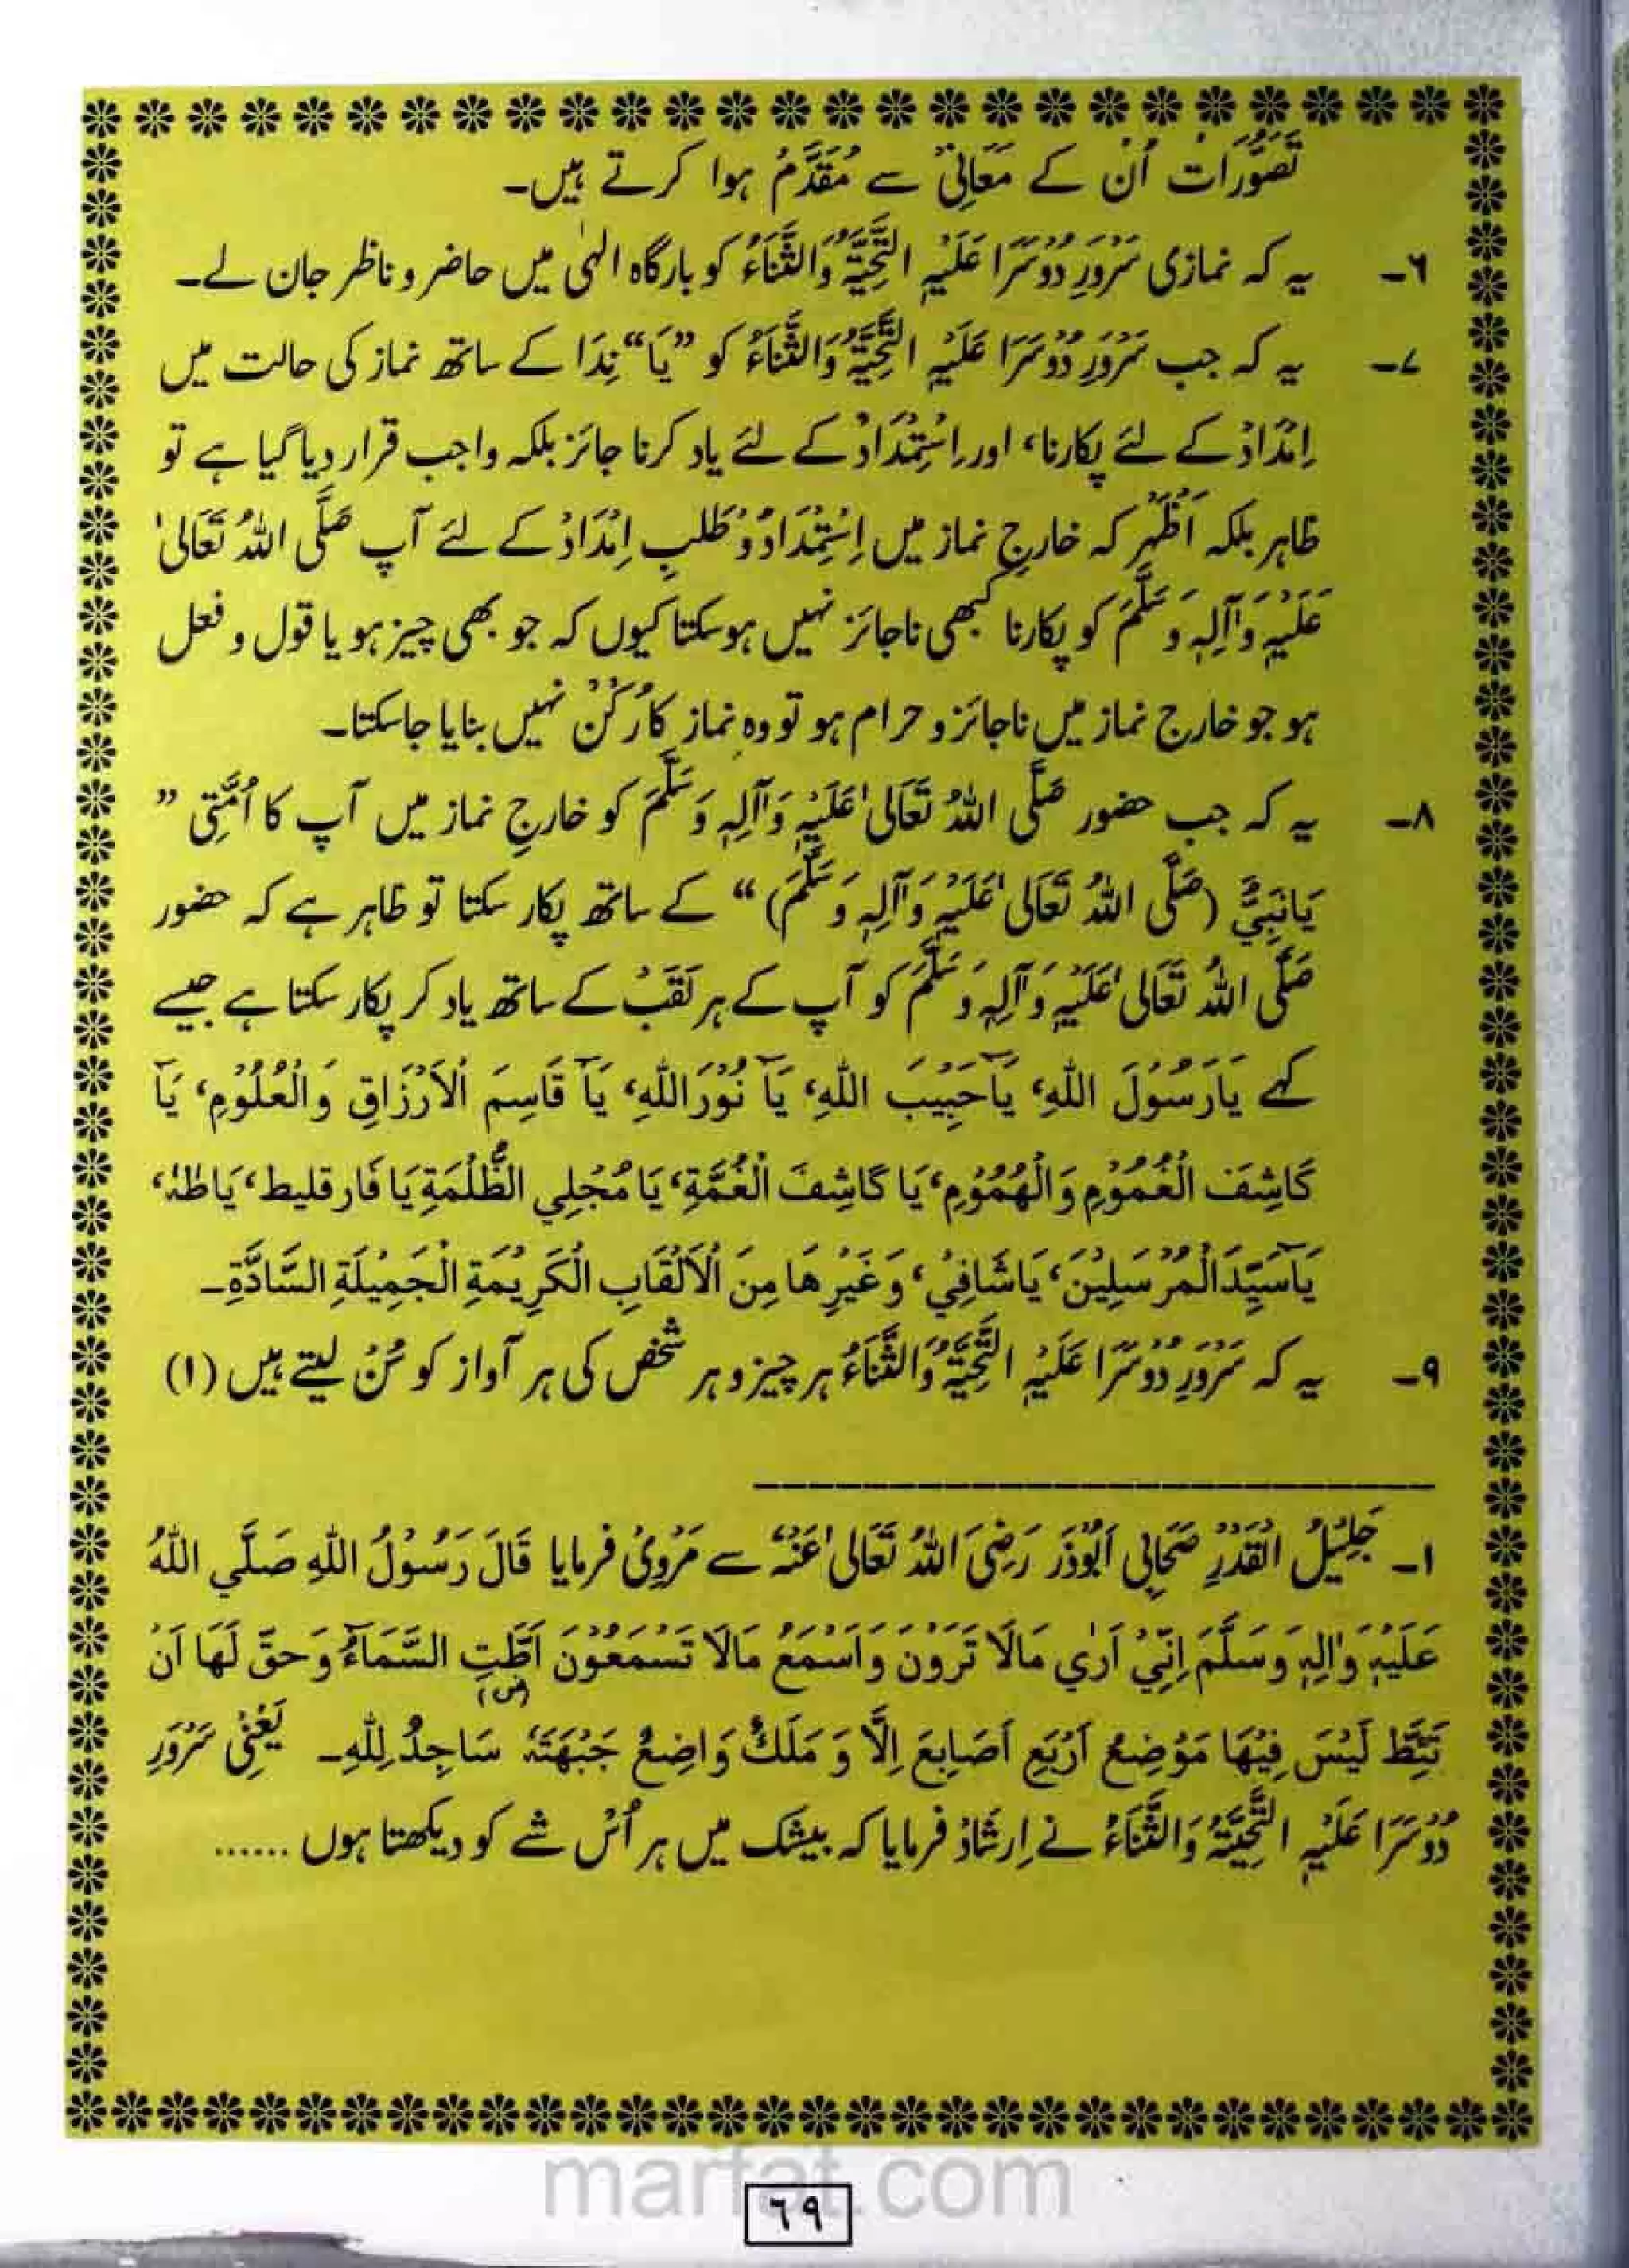 تَصَوُّرَات اُن کے مَعَانِیْ سے مُقَدَّمُ ہوا کرتے ہیں۔
۶۔ یہ کہ نمازی سَرْوَرِ دُوسَرَا عَلَیْہِ التَّحِیَّۃُ وَالثَّنَاءُ کو بارگاہ الہٰی میں حاضر و ناظر جان لے۔
۷۔ یہ کہ جب سَرْوَرِ دُوسَرَا عَلَیْہِ التَّحِیَّۃُ وَالثَّنَاءُ کو ”یَا“ نِدَا کے ساتھ نماز کی حالت میں
اِمْدَادْ کے لئے پکارنا، اور اِسْتِمْدَادْ کے لئے یاد کرنا جائز بلکہ واجب قرار دیا گیا ہے تو
ظاہر بلکہ اَظْہَر کہ خارجِ نماز میں اِسْتِمْدَادْ وَ طَلَبِ اِمْدَادْ کے لئے آپ صَلَّی اللہُ تَعَالیٰ
عَلَیْہِ وَآلِہٖ وَسَلَّمَ کو پکارنا کبھی ناجائز نہیں ہوسکتا کیوں کہ جو بھی چیز ہو یا قول و فعل
ہو جو خارج نماز میں ناجائز و حرام ہو تو وہ نماز کا رُکْنْ نہیں بنایا جاسکتا۔
۸۔ یہ کہ جب حضور صَلَّی اللہُ تَعَالیٰ عَلَیْہِ وَآلِہٖ وَسَلَّمَ کو خارجِ نماز میں آپ کا اُمَّتِی ”
یَانَبِیُّ (صَلَّی اللہُ تَعَالیٰ عَلَیْہِ وَآلِہٖ وَسَلَّمَ)“ کے ساتھ پکار سکتا تو ظاہر ہے کہ حضور
صَلَّی اللہُ تَعَالیٰ عَلَیْہِ وَآلِہٖ وَسَلَّمَ کو آپ کے ہر لَقَبْ کے ساتھ یاد کر پکار سکتا ہے جیسے
کہے یَارَسُوْلَ اللّٰہِ، یَآحَبِیْبَ اللّٰہِ، یَآ نُوْرَاللّٰہِ، یَآ قَاسِمَ الْاَرْزَاقِ وَالْعُلُوْمِ، یَآ
کَاشِفَ الْغُمُوْمِ وَالْهُمُوْمِ، یَا کَاشِفَ الْغُمَّةِ، یَا مُجْلِي الظُّلْمَةِ یَا فَارقلیط، یَاطٰہٰ،
یَآسَیِّدَالْمُرْسَلِیْنَ، یَاشَافِيْ، وَغَیْرِهَا مِنَ الْاَلْقَابِ الْکَرِیْمَةِ الْجَمِیْلَةِ السَّادَّةِ۔
۹۔ یہ کہ سَرْوَرِ دُوسَرَا عَلَیْہِ التَّحِیَّۃُ وَالثَّنَاءُ ہر چیز و ہر شخص کی ہر آواز کو سُنْ لیتے ہیں (۱)
۱۔ جَلِیْلُ الْقَدْرِ صَحَابِی اَبُوْذَر رَضِیَ اللہُ تَعَالیٰ عَنْہُ سے مَرْوِیْ فرمایا قَالَ رَسُوْلُ اللّٰہِ صَلَّي اللّٰہُ
عَلَیْہِ وَاٰلِہٖ وَسَلَّمَ اِنِّيْ اَرٰي مَالَا تَرَوْنَ وَاَسْمَعُ مَالَا تَسْمَعُوْنَ اَطَّتِ السَّمَآءُ وَحَقَّ لَهَا اَنْ
(س)
تَئِطَّ لَیْسَ فِیْهَا مَوْضِعُ اَرْبَعِ اَصَابِعَ اِلَّا وَ مَلَكٌ وَاضِعٌ جَبْهَتَہٗ سَاجِدٌ لِلّٰہِ۔ یَعْنِیْ سَرْوَرِ
دُوْسَرَا عَلَیْہِ التَّحِیَّۃُ وَالثَّنَاءُ نے اِرشَادْ فرمایا کہ بیشک میں ہر اُسْ شے کو دیکھتا ہوں ......
marfat.com
٦٩